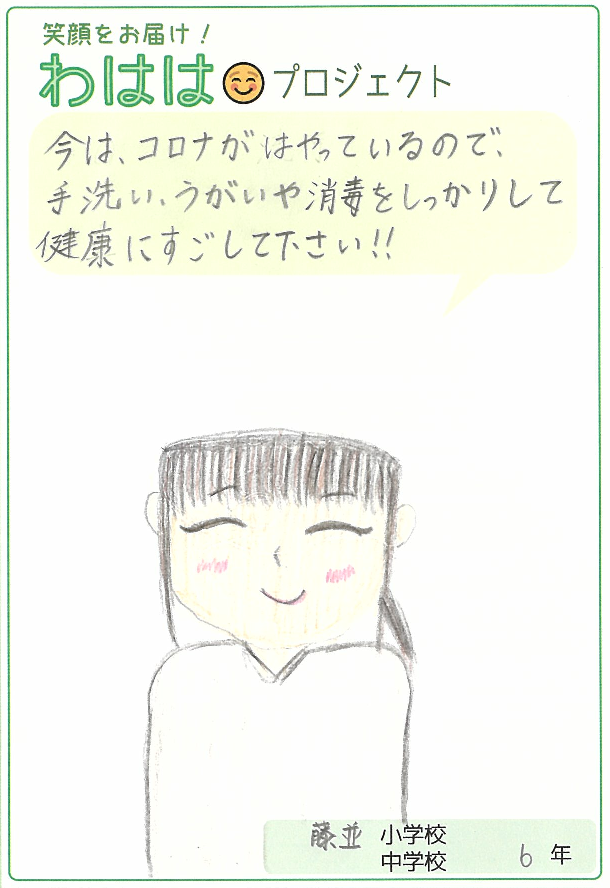 笑顔をお届け！
わはは プロジェクト
今は、コロナがはやっているので、
手洗い、うがいや消毒をしっかりして
健康にすごして下さい!!
藤並 小学校
中学校 6年